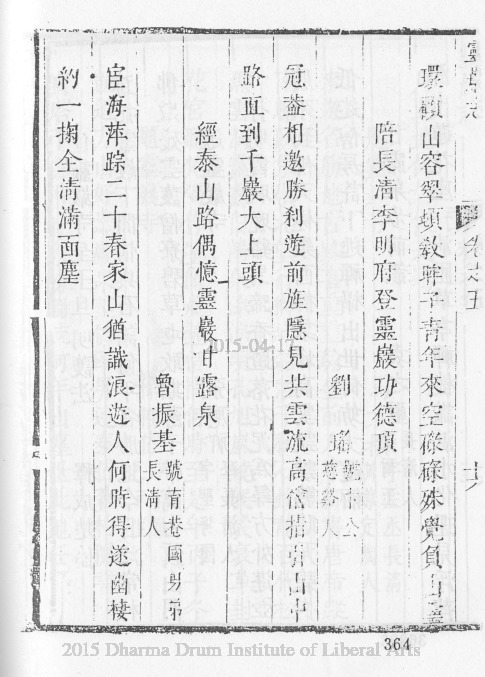 環嶺山容翠頃教 青年來空碌碌殊覺負山靈
陪長清李明府登靈巖功德頂
劉
冠葢相邀勝刹遊前旌隱見共雲流高僧指引山中
路直到千巖大上頭
經泰山路偶憶靈巖甘露泉
魯振基
長清人
宦海萍踪二十春家山猶識浪遊人何時得遂幽棲
約一掬全清滿面塵
卷之五
2015-04-17
364
2015 Dharma Drum Institute of Liberal Arts